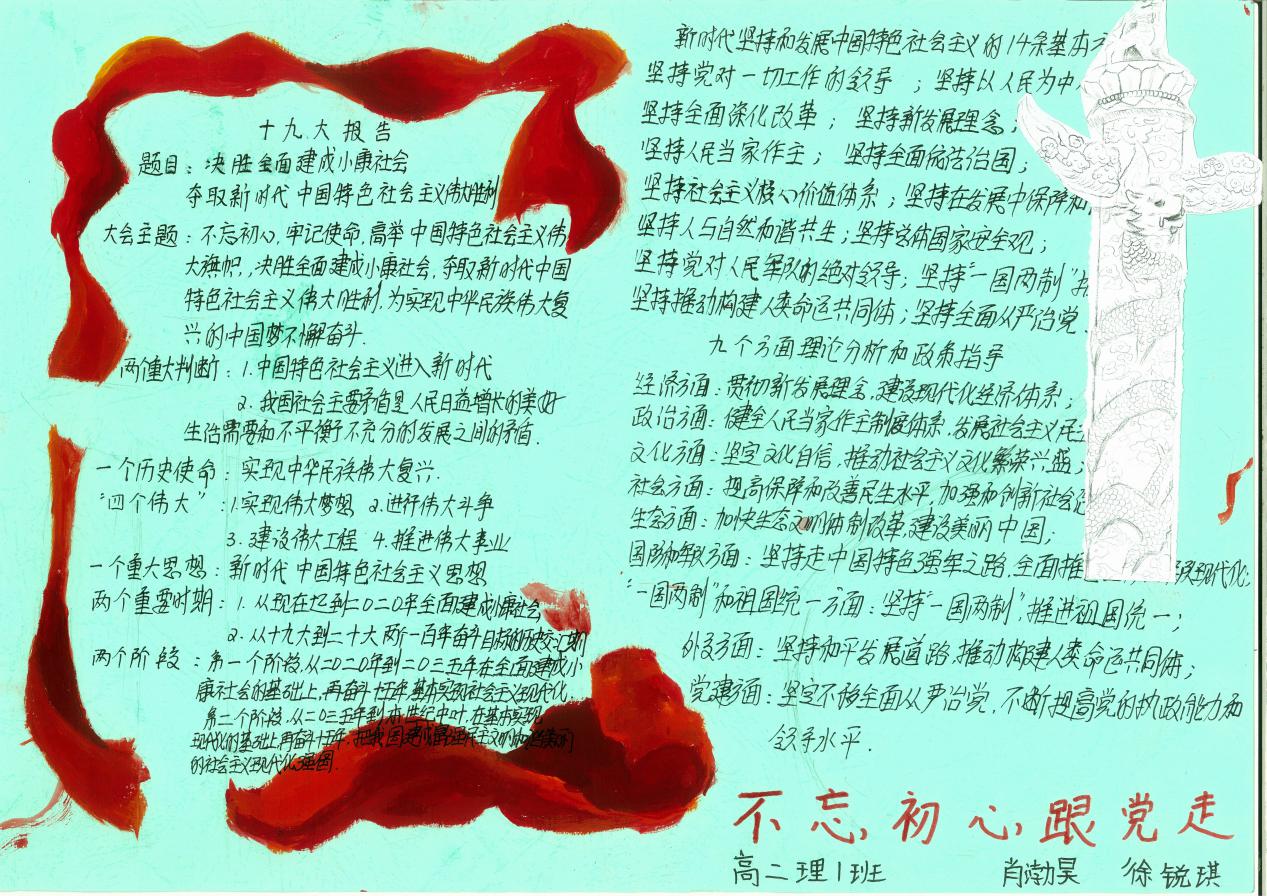 十九大报告
题目：决胜全面建成小康社会
夺取新时代中国特色社会主义伟大胜利
大会主题：不忘初心，牢记使命，高举中国特色社会主义伟
大旗帜，决胜全面建成小康社会，夺取新时代中国
特色社会主义伟大胜利，为实现中华民族伟大复
兴的中国梦不懈奋斗．
两个重大判断：1．中国特色社会主义进入新时代
2．我国社会主要矛盾是人民日益增长的美好
生活需要和不平衡不充分的发展之间的矛盾．
一个历史使命：实现中华民族伟大复兴．
"四个伟大"：1.实现伟大梦想 2.进行伟大斗争
3.建设伟大工程 4.推进伟大事业
一个重大思想：新时代中国特色社会主义思想
两个重要时期：1.从现在起到二〇二〇年全面建成小康社会
2.从十九大到二十大两个一百年奋斗目标的历史交汇期
两个阶段：第一个阶段，从二〇二〇年到二〇三五年在全面建成小
康社会的基础上，再奋斗十五年基本实现社会主义现代化
第二个阶段，从二〇三五年到本世纪中叶，在基本实现
现代化的基础上再奋斗十五年，把我国建成富强民主文明和谐美丽
的社会主义现代化强国．
新时代坚持和发展中国特色社会主义的14条基本方
坚持党对一切工作的领导；坚持以人民为中
坚持全面深化改革；坚持新发展理念；
坚持人民当家作主；坚持全面依法治国；
坚持社会主义核心价值体系；坚持在发展中保障和
坚持人与自然和谐共生；坚持总体国家安全观；
坚持党对人民军队的绝对领导；坚持"一国两制"
坚持推动构建人类命运共同体；坚持全面从严治党
九个方面理论分析和政策指导
经济方面：贯彻新发展理念，建设现代化经济体系；
政治方面：健全人民当家作主制度体系，发展社会主义民
文化方面：坚定文化自信，推动社会主义文化繁荣兴盛；
社会方面：提高保障和改善民生水平，加强和创新社会
生态方面：加快生态文明体制改革，建设美丽中国；
国防和军队方面：坚持走中国特色强军之路，全面推 现代化；
"一国两制"和祖国统一方面：坚持"一国两制"，推进祖国统一；
外交方面：坚持和平发展道路，推动构建人类命运共同体；
党建方面：坚定不移全面从严治党，不断提高党的执政能力和
领导水平．
不忘初心，跟党走
高二理1班 肖渤昊 徐锐琪